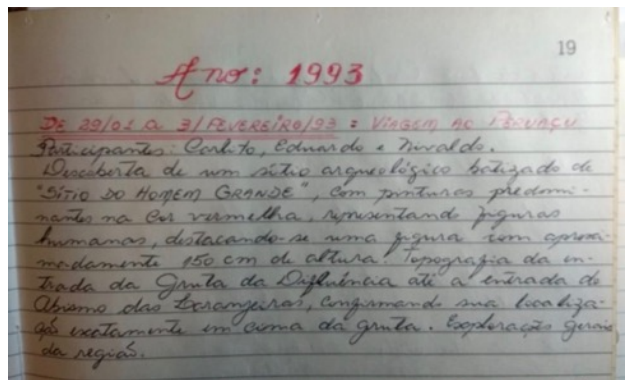 19
Ano: 1993
DE 29/01 a 3/FEVEREIRO/93 : VIAGEM AO PERUAÇU
Participantes: Carlito, Eduardo e Nivaldo.
Descoberta de um sítio arqueológico batizado de
"SÍTIO DO HOMEM GRANDE", com pinturas predomi-
nantes na cor vermelha, representando figuras
humanas, destacando-se uma figura com aproxi-
madamente 150 cm de altura. Topografia da en-
trada da Gruta da Difluência até a entrada do
Abismo das Laranjeiras, confirmando sua localiza-
ção exatamente em cima da gruta. Explorações gerais
da região.